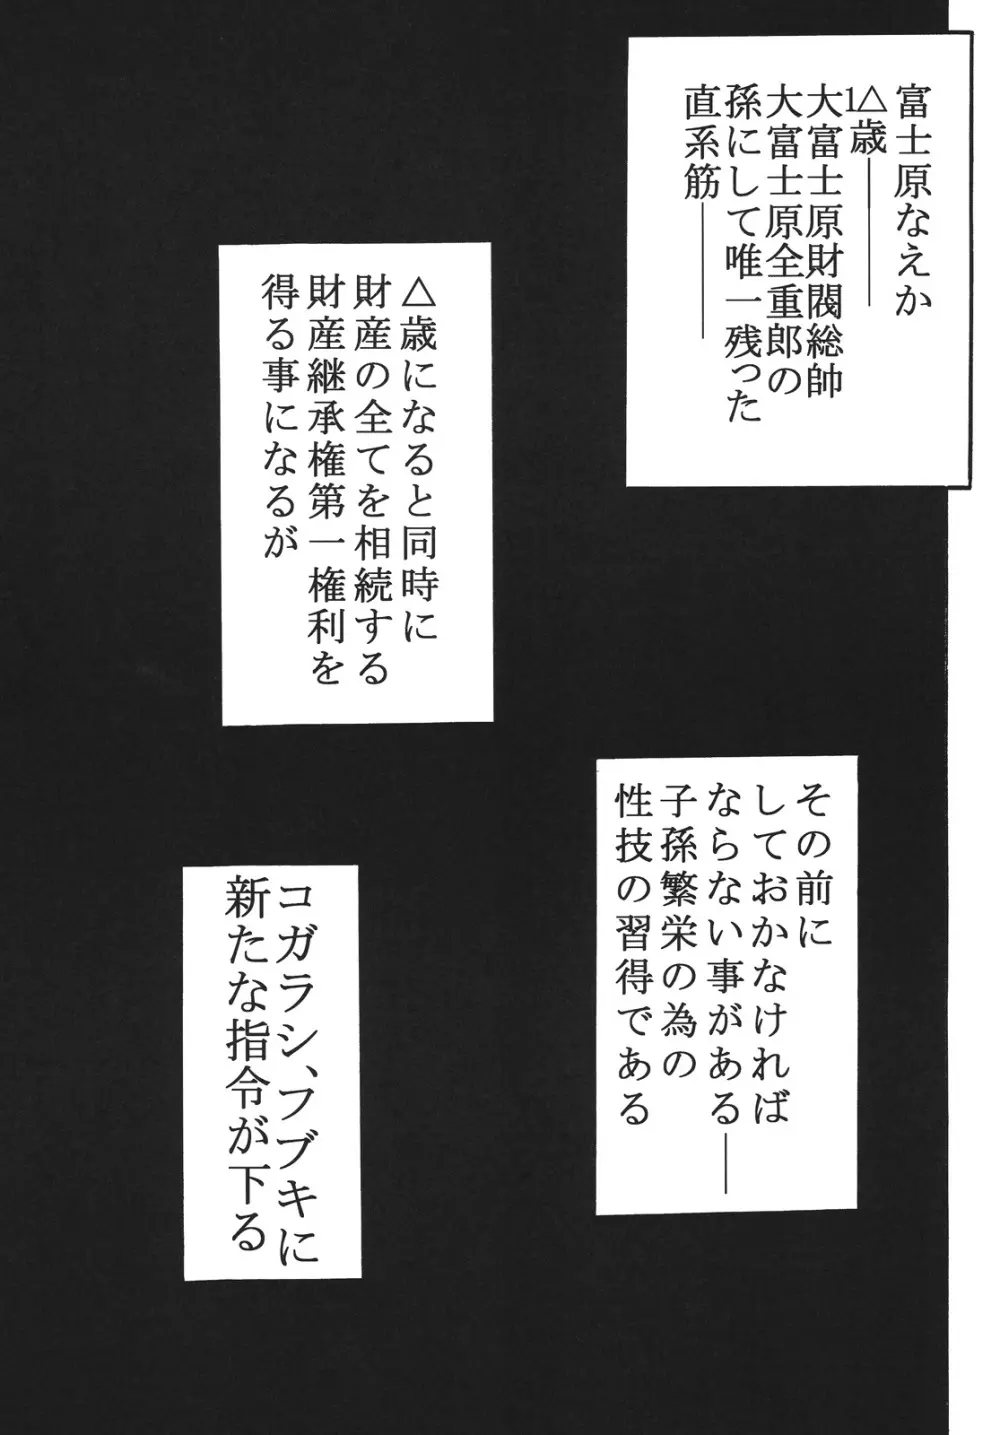 富士原なえか
1△歳――
大富士原財閥総帥
大富士原全重郎の
孫にして唯一残った
直系筋――
△歳になると同時に
財産の全てを相続する
財産継承権第一権利を
得る事になるが
その前に
しておかなければ
ならない事がある――
子孫繁栄の為の
性技の習得である
コガラシ、フブキに
新たな指令が下る